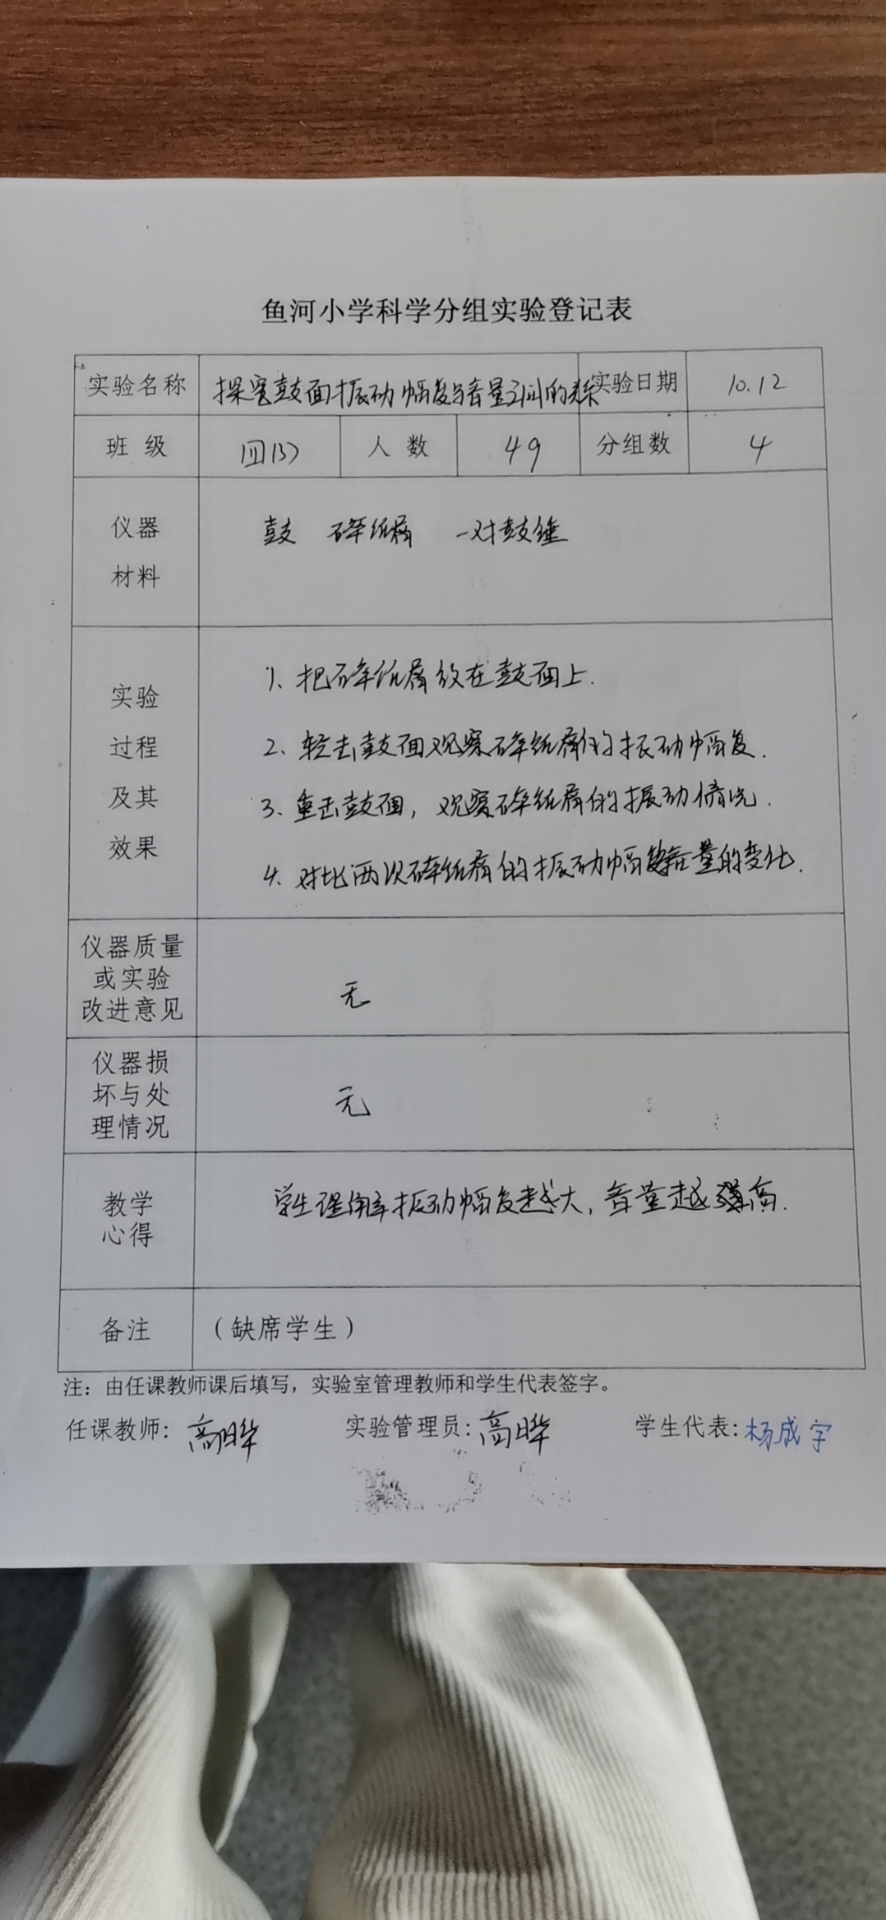 鱼河小学科学分组实验登记表
实验名称 探究鼓面振动幅度与音量之间的关系 实验日期 10.12
班 级 四(3) 人 数 49 分组数 4
仪器
材料
鼓 碎纸屑 一对鼓锤
实验
过程
及其
效果
1、把碎纸屑放在鼓面上.
2、轻击鼓面观察碎纸屑的振动幅度.
3、重击鼓面，观察碎纸屑的振动情况.
4、对比两次碎纸屑的振动幅度音量的变化.
仪器质量
或实验
改进意见
无
仪器损
坏与处
理情况
无
教学
心得
学生理解振动幅度越大，音量越高.
备注 (缺席学生)
注：由任课教师课后填写，实验室管理教师和学生代表签字。
任课教师: 高晔 实验管理员: 高晔 学生代表: 杨成宇